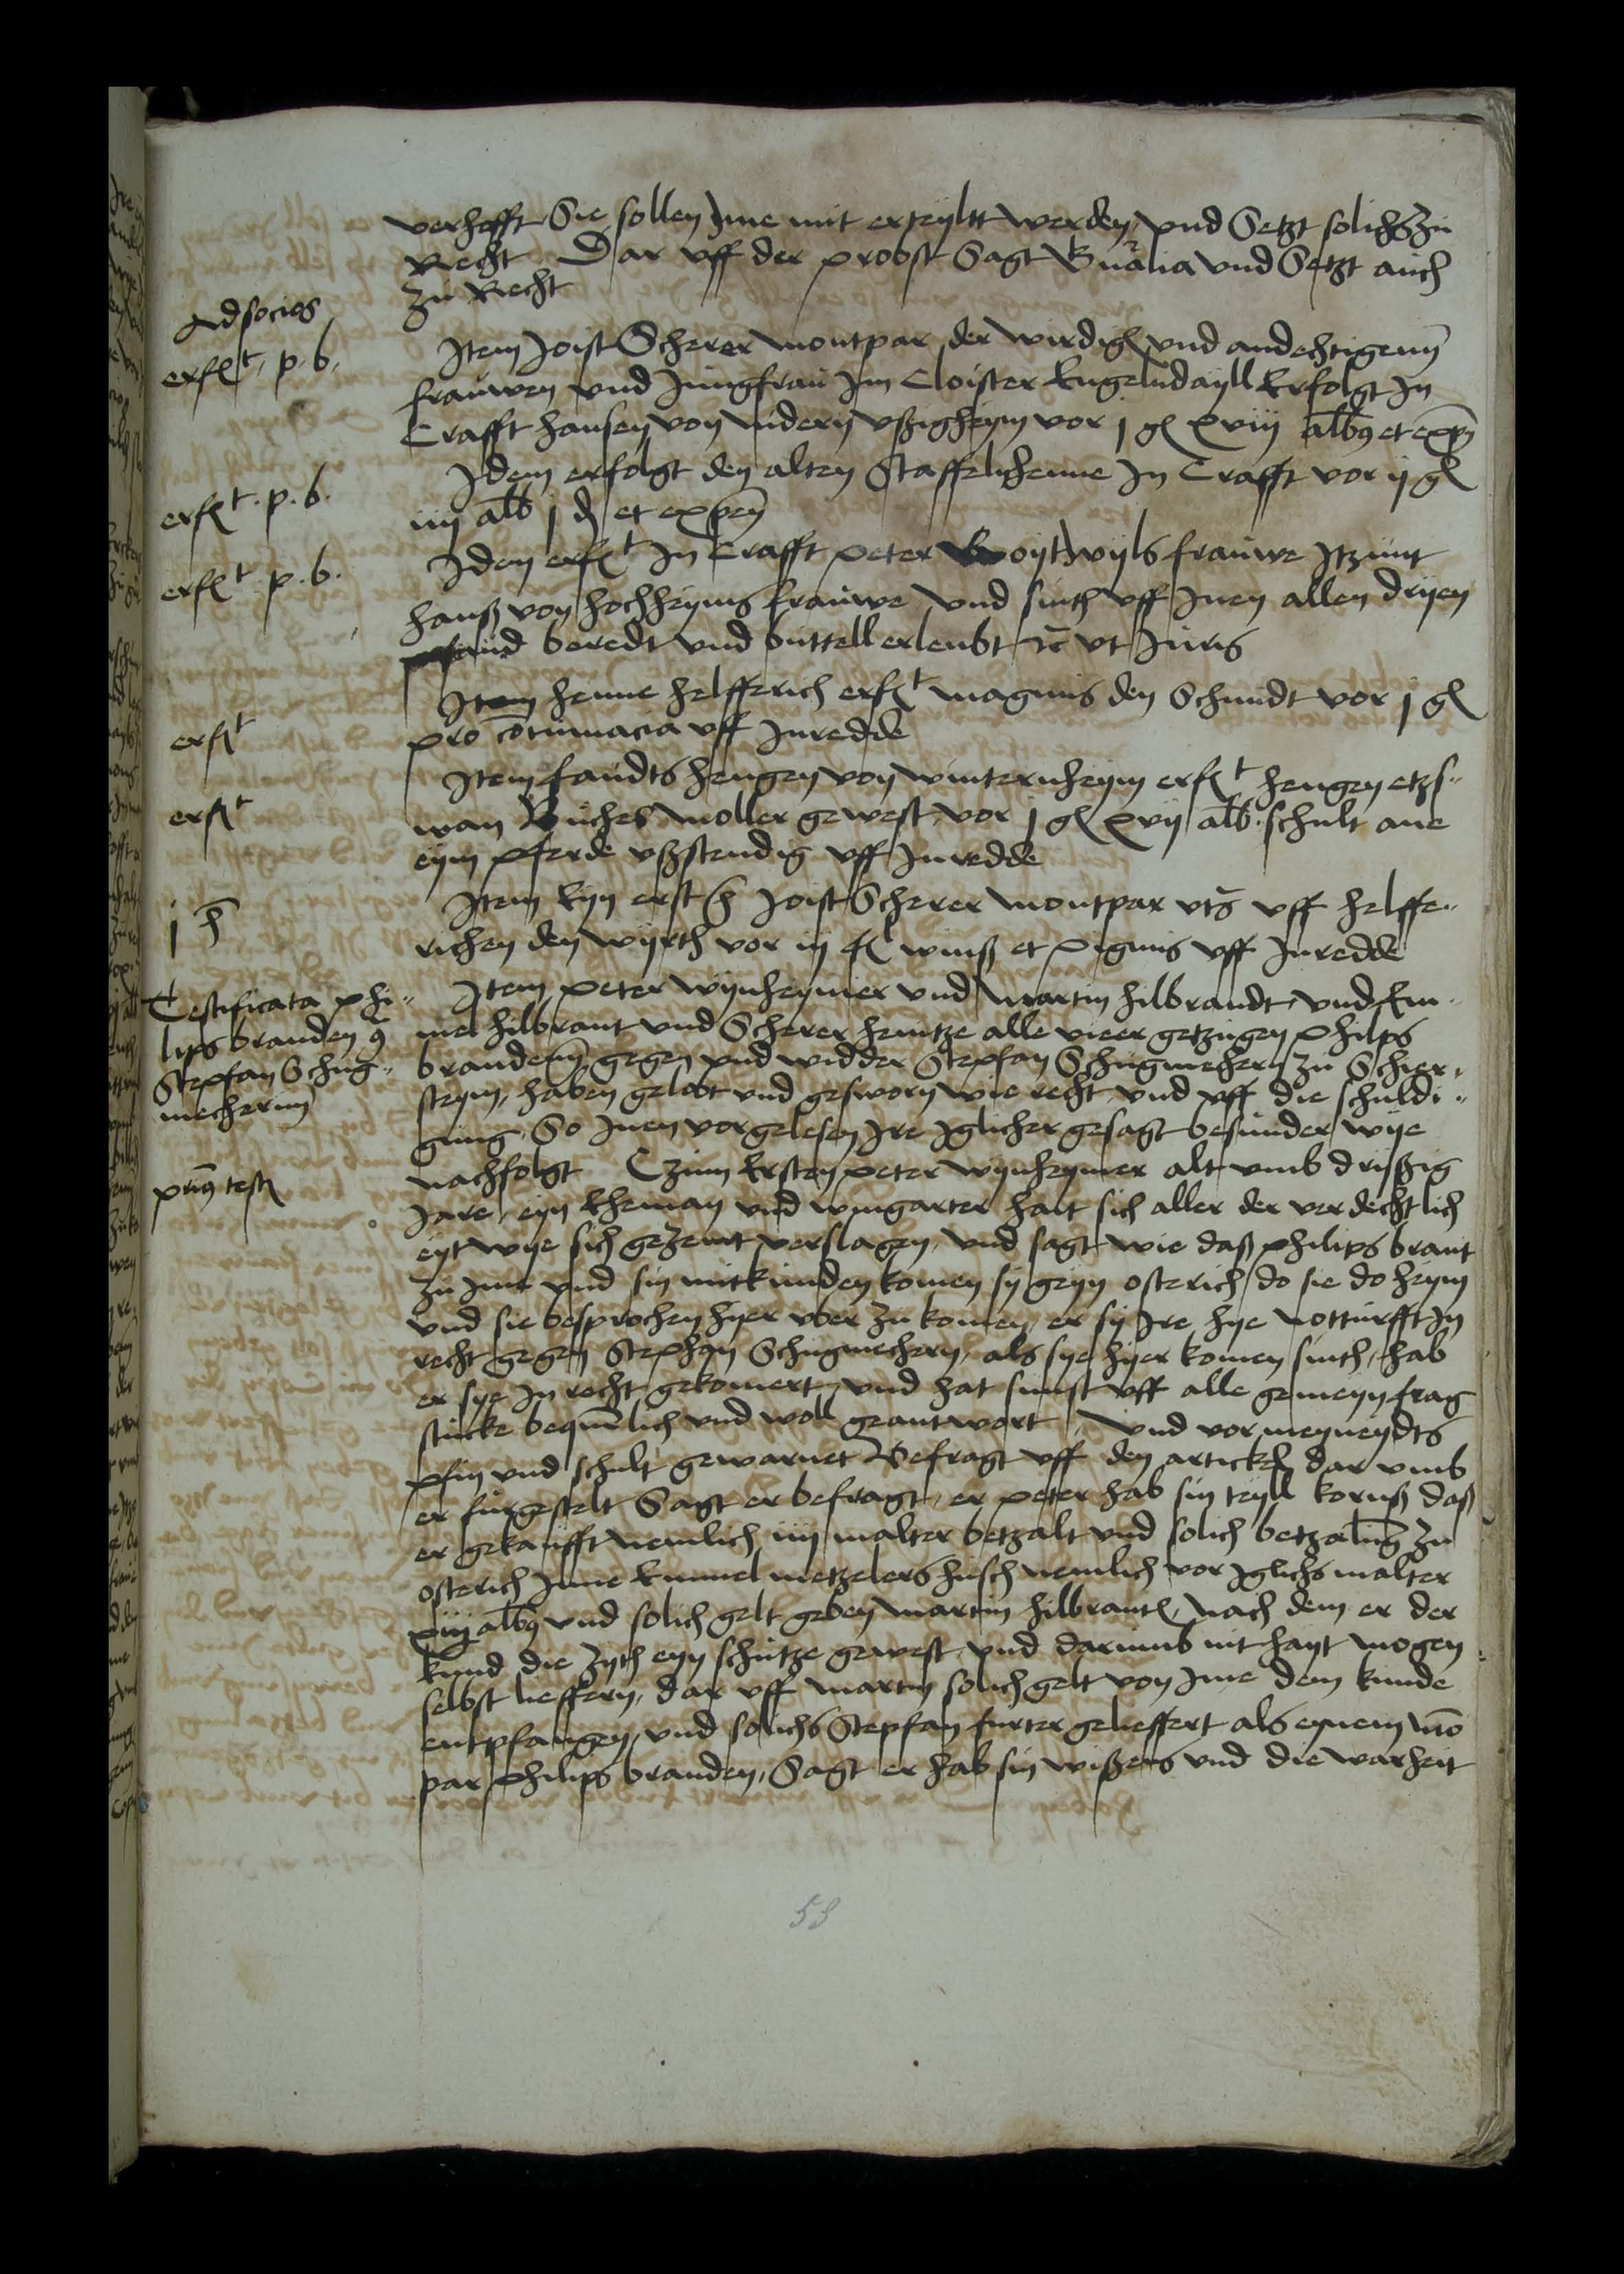 verhofft Sie sollen Jme nit erteyltt werden, vnd Setzt solichs zu
Recht Dar vff der probst Sagt vnd Setzt auch
zu Recht
Ad socios
erfꝉt. p. b.
Item Joist Scherer montpar der wirdigꝉ vnd andechtigenn
frauwen vnd Jungfrau Jm Cloister Engelndayll Erfolgt In
Crafft hansen von nidern vßigheym vor j gꝉ xviij alb9 et expen
erfꝉt. p. b.
Idem erfolgt den alten Staffelhenne In Crafft vor ij gꝉ
iiij alb j ₰ et expen
erfꝉt. p. b.
Iden erfꝉt In Crafft peter frauwe Itzunt
hanß von hochheyms frauwe vnd sinth vff Jnen allen dryen
pfand beredt vnd buttell erleubt ut Juris
erfꝉt
Item henne helfferich erfꝉt magnus den Schmidt vor j gꝉ
pro cotumacia vff Inredde
erfꝉt
Item faudts hengen von winternheym erfꝉt hengen etzs
wan Buches moller gewest, vor j gꝉ xvij alb. schult ane
eym pferde vßstendig vff Inredde
j h
Item Eyn erst h Joist Scherer montpar vts vff helffe
richen den wyrth vor iij fꝉ winß et pignus vff Inredde
Testificata phi
lips branden 9
Stepfan Schug
mecherim
Item peter wynheymer vnd Martin hilbrandt, vnd Em
mel hilbrant vnd Scherer heintze alle vieer getzugen philps
brandenn gegen vnd widder Stepfan Schugmehern zu Schier
steym, haben gelobt vnd gesworn wie recht vnd vff die schuldi
gung, So Jnen vorgelesen Jre Jglicher gesagt besunder wye
prim9 testꝭ
nachfolgt Czum Ersten peter wynheymer alt vmb dryßig
Jare, eyn Eheman vnd wingarter halt sich aller der verdechtlich
eyt wye sich gezemt verslagen, vnd sagt wie daß philips brant
zu Jme vnd sin mitkunden komen sy geyn osterich, do sie do heym
vnd sie besprochen hyer vber zu komen, er sy Jre hye notturfft In
recht gegen Stephan Schugmechern, als sye hyer komen sinth, hab
er sye In recht gekomert, vnd hat sunst vff alle gemeyn frag
stucke bequelich vnd woll geantwort, vnd vor meyneydts
pfin vnd schult gewarnet Befragt vff den artickel dar vmb
er furgestelt Sagt er befragt, er peter hab sin teyll kornß daß
er gekaufft nemlich iiij malter betzalt vnd solich betzalung zu
osterich Jnne Emmel metzelers husch nemlich vor Jglichs malter
xiiij alb9 vnd solich gelt geben Martin hilbrantꝭ, nach dem er der
kund die zyth eyn schutze gewest, vnd darumb nit hayt mogen
selbst lieffern, dar vff martin solich gelt von Jme dem kunde
entpfangen, vnd solichs Stepfan furter gelieffert als eynem mo
par philips branden, Sagt er hab sin wißens vnd die warheit